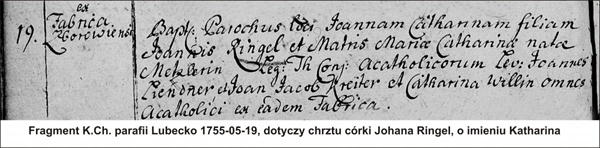 ex
19. Fabrica Bapt: Parochus loci Joannam Catharinam filiam
Zborowiensi Joannis Ringel et Matris Mariæ Catharinæ natæ
Metzlerin Leg: Th Conj: Acatholicorum Lev: Joannes
Lendner et Joan Jacob Kreiter et Catharina Willin omnes
Acatholici ex eadem Fabrica.
Fragment K.Ch. parafii Lubecko 1755-05-19, dotyczy chrztu córki Johana Ringel, o imieniu Katharina